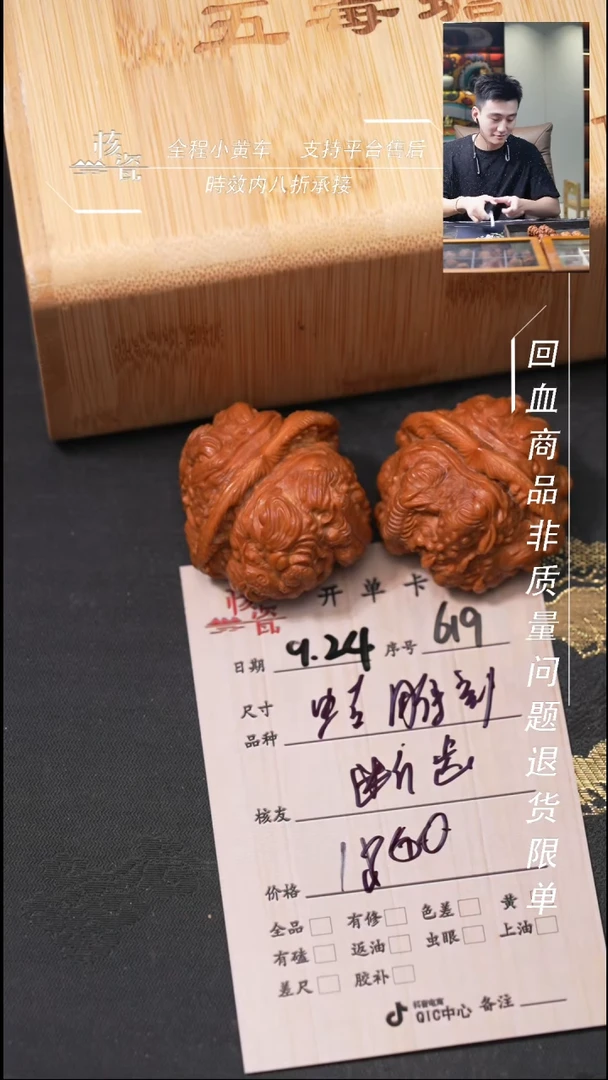 五毒蟾
核瓷
全程小黄车 支持平台售后
時效内八折承接
回血商品非质量问题退货限单
核瓷
开单卡
日期 9.24 序号 619
尺寸
品种
核友
价格 1860
全品 有修 色差 黄
有磕 返油 虫眼 上油
差尺 胶补
抖音电商
QIC中心 备注